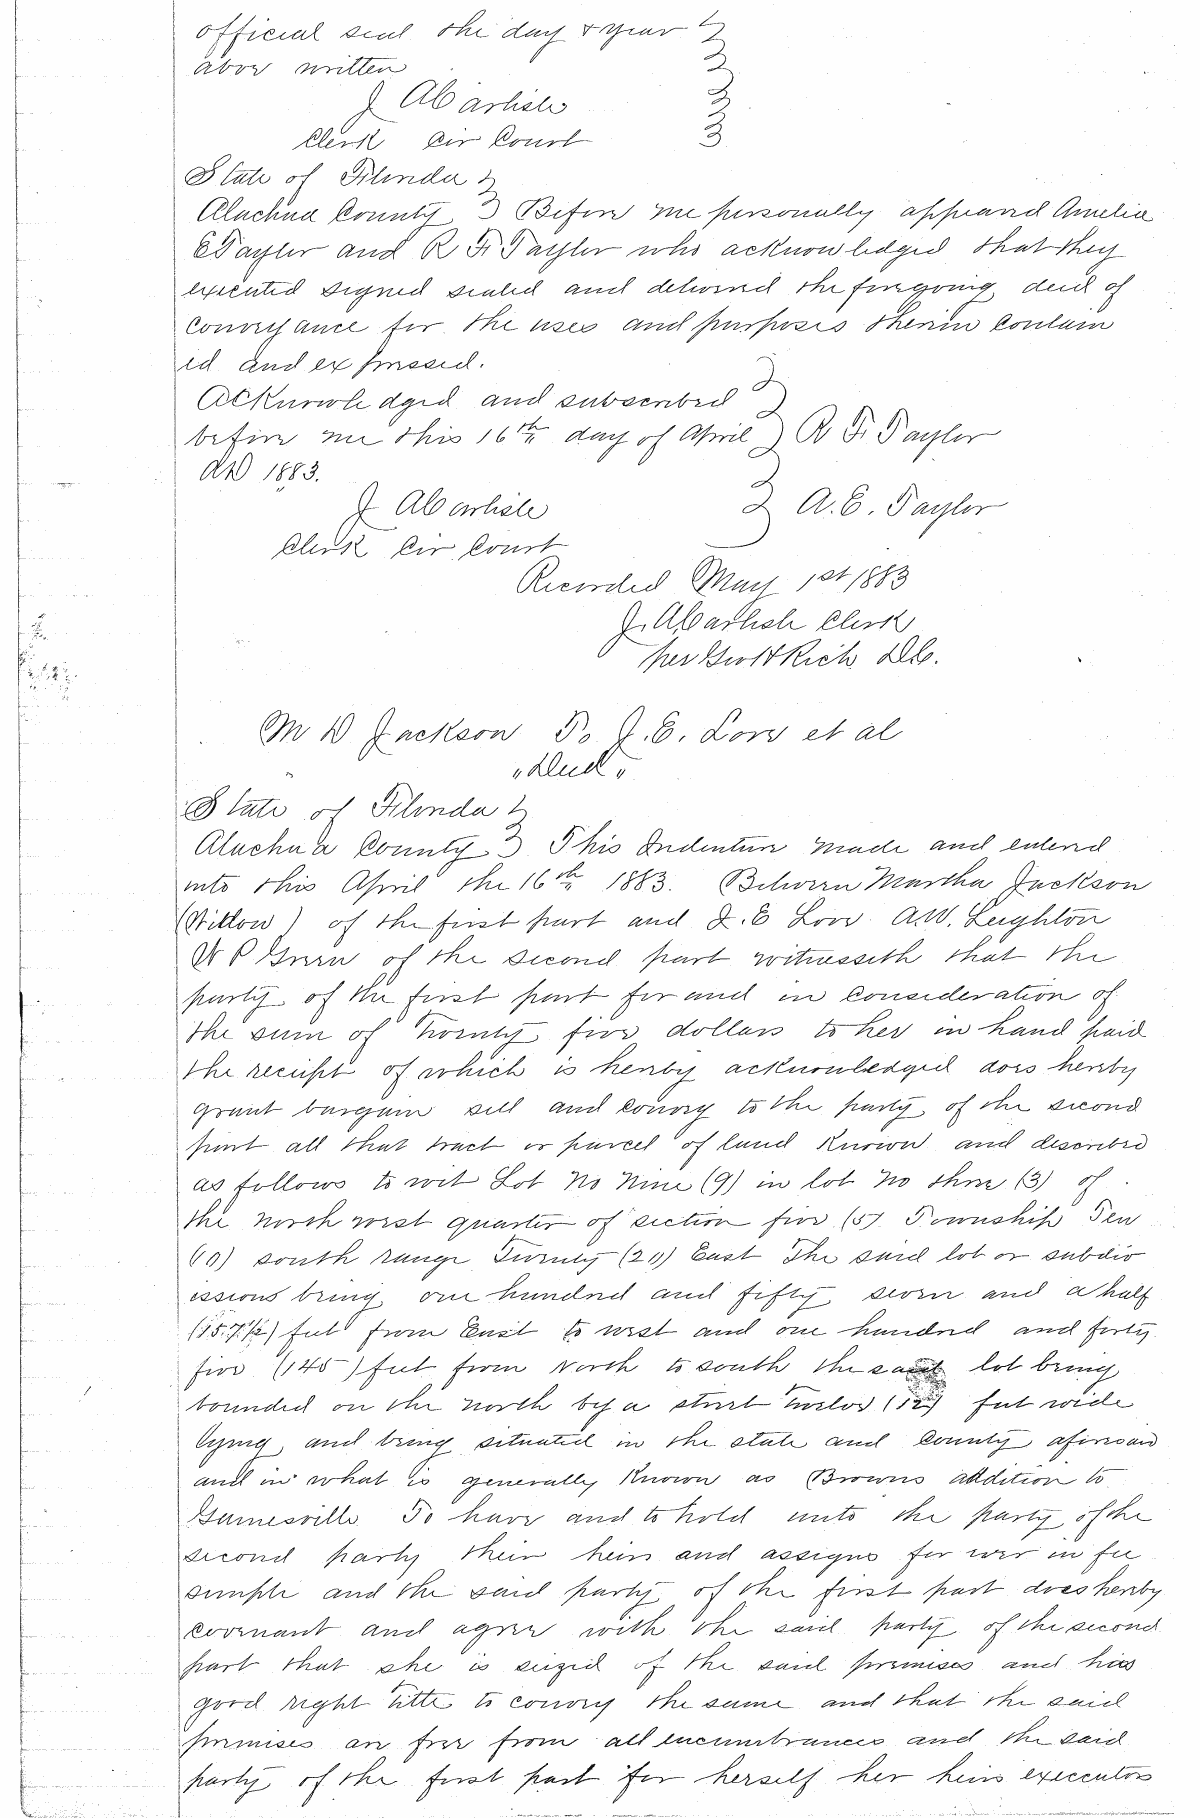 official seal the day & year
above written
J A Carlisle
Clerk Cir Court
State of Florida
Alachua County Before me personally appeared Amelia
E Tayler and R F Tayler who acknowledged that they
executed signed sealed and delivered the foregoing deed of
conveyance for the uses and purposes therein contain
ed and expressed.
Acknowledged and subscribed
before me this 16th day of April R F Tayler
AD 1883.
J A Carlisle A. E. Tayler
Clerk Cir Court
Recorded May 1st 1883
J. A. Carlisle Clerk
per Rich D.C.
M D Jackson To J. E. Love et al
"Deed"
State of Florida
Alachua County This Indenture made and entered
into this April the 16th 1883. Between Martha Jackson
(Widow) of the first part and J. E Love A.W. Leighton
W P Green of the second part witnesseth that the
party of the first part for and in consideration of
the sum of Twenty five dollars to her in hand paid
the receipt of which is hereby acknowledged does hereby
grant bargain sell and convey to the party of the second
part all that tract or parcel of land known and described
as follows to wit Lot No Nine (9) in lot No three (3) of
the north west quarter of section five (5) Township Ten
(10) south range Twenty (20) East The said lot or subdiv
issions being one hundred and fifty seven and a half
(157½) feet from East to west and one hundred and forty
five (145) feet from North to south the said lot being
bounded on the north by a street twelve (12) feet wide
lying and being situated in the state and County aforesaid
and in what is generally known as Browns addition to
Gainesville To have and to hold unto the party of the
second party their heirs and assigns for ever in fee
simple and the said party of the first part does hereby
covenant and agree with the said party of the second
part that she is seized of the said premises and has
good right title to convey the same and that the said
premises are free from all encumbrances and the said
party of the first part for herself her heirs executors